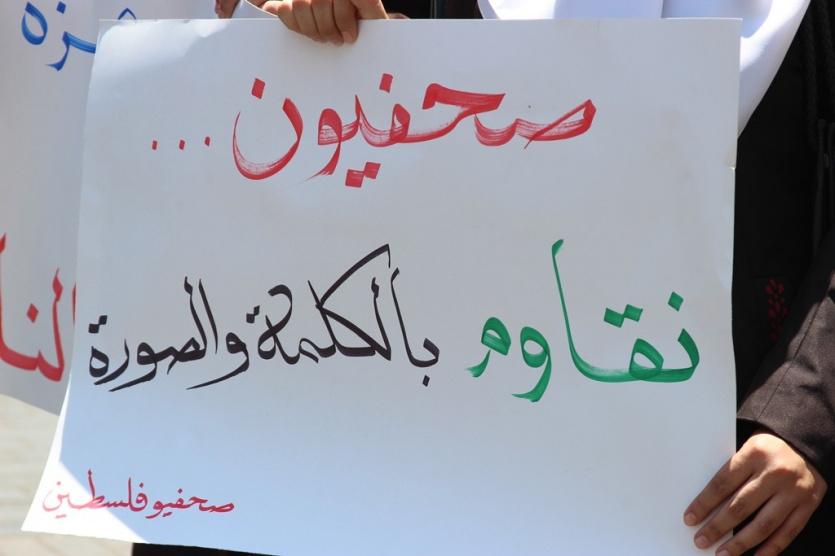 صحفيون ...
نقاوم بالكلمة والصورة
صحفيو فلسطين